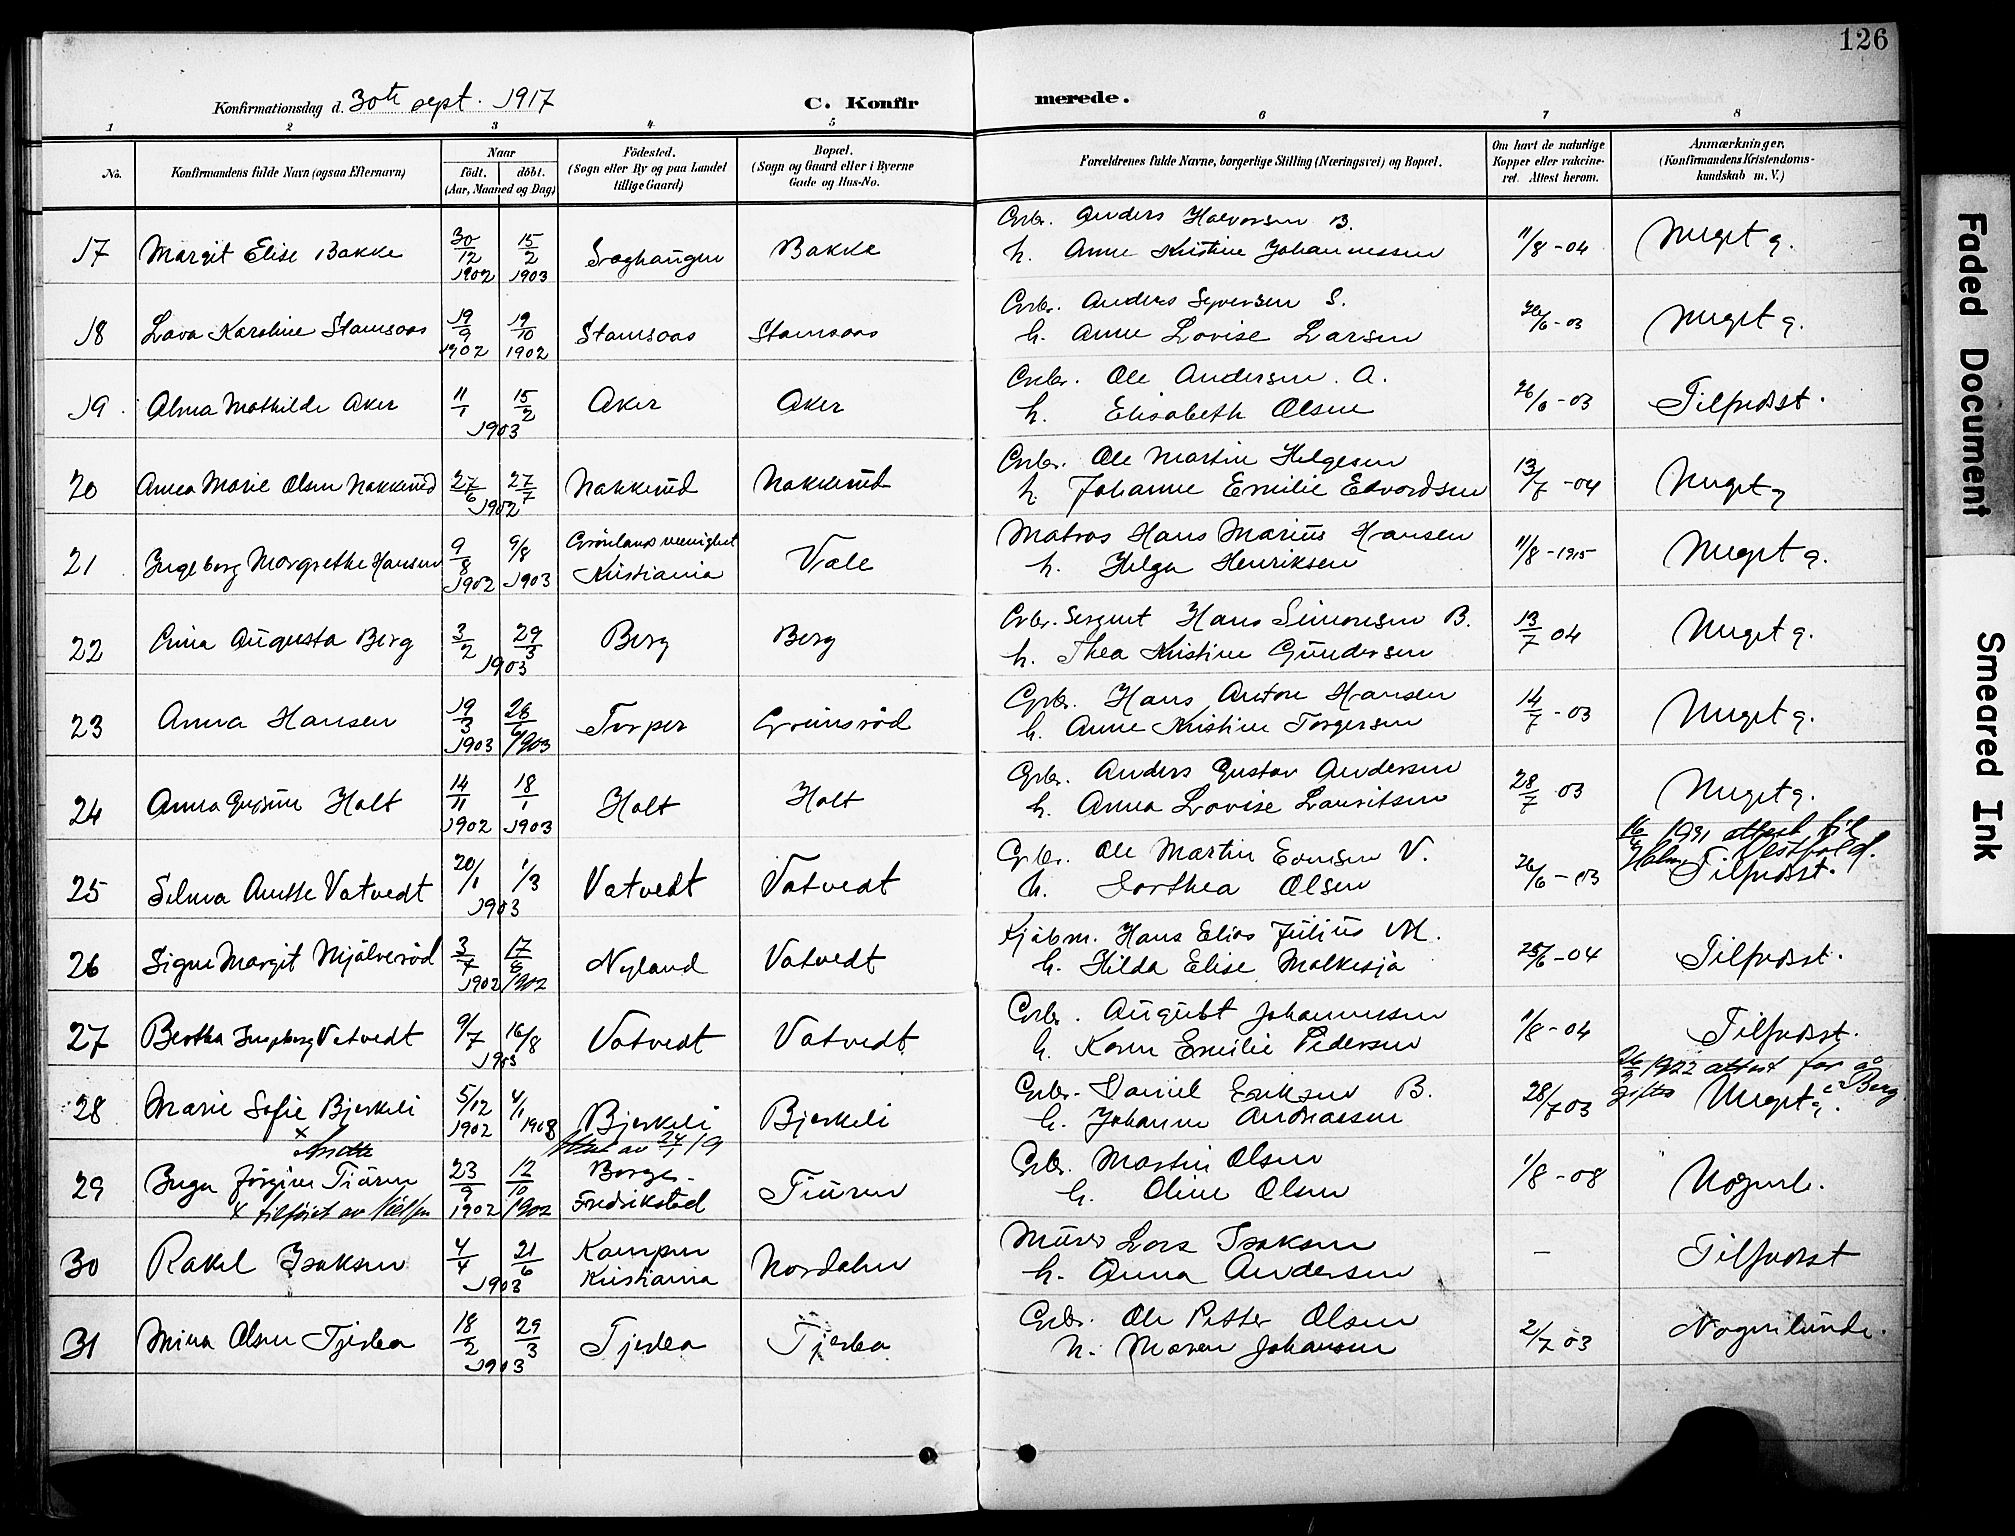 126
Konfirmationsdag d. 30te sept. 1917
C. Konfir
merede.
1 2 3 4 5 6 7 8
No.
Konfirmandens fulde Navn (ogsaa Efternavn)
Naar
födt. döbt.
(Aar, Maaned og Dag)
Födested.
(Sogn eller By og paa Landet
tillige Gaard)
Bopæl.
(Sogn og Gaard eller i Byerne
Gade og Hus-No.
Forældrenes fulde Navne, borgerlige Stilling (Næringsvei) og Bopæl.
Om havt de naturlige
Kopper eller vakcine-
ret. Attest herom.
Anmærkninger,
(Konfirmandens Kristendoms-
kundskab m. V.)
17 Margit Elise Bakke 30/12 1902 15/2 1903 Bakke
Grbr. Anders Halvorsen B.
h. Anne Kristine Johannessen 11/8-04 Meget g.
18 Lava Karoline Stamsaas 19/9 1902 19/10 1902 Stamsaas Stamsaas
Grbr. Anders Syversen S.
h. Anne Lovise Larsen 26/6-03 Meget g.
19. Alma Mathilde Aker 11/1 15/2 1903 Aker Aker
Grbr. Ole Andersen. A.
h. Elisabeth Olsen 26/6-03 Tilfredsst.
20 Anna Marie Olsen Nakkerud 27/6 27/7 1902 Nakkerud Nakkerud
Grbr. Ole Martin Helgesen
h. Johanne Emilie Edvardsen 13/7-04 Meget g
21 Ingeborg Margrethe Hansen 9/8 1902 9/8 1903 Grönlands menighet
Kristiania Vale
Matros Hans Marius Hansen
h. Helga Henriksen 11/8-1915 Meget g.
22 Augusta Berg 3/2 29/3 1903 Berg Berg
Grbr. Sergent Hans Simonsen B.
h. Thea Kristine Gundersen 13/7 04 Meget g.
23 Anna Hansen 19/3 1903 28/6 1903 Torper Grimsröd
Grbr. Hans Anton Hansen
h. Anne Kristine Torgersen 14/7-03 Meget g.
24 Anna Holt 14/11 1902 18/1 1903 Holt Holt
Grbr. Anders Gustav Andersen
h. Anna Lovise Lauritsen 28/7 03 Meget g.
1931 attest til
Vestfold.
25 Selma Anette Vatvedt 20/1 1/3 1903 Vatvedt Vatvedt
Grbr. Ole Martin Evensen V.
h. Dorthea Olsen 26/6-03 Tilfredsst.
26 Signe Margit Mjälveröd 3/7 1902 17/8 1902 Nyland Vatvedt
Kjöbm. Hans Elias Julius M.
h. Hilda Elise Malkesjä 25/6-04 Tilfredsst.
27 Bertha Ingeborg Vatvedt 9/7 16/8 1903 Vatvedt Vatvedt
Grbr. August Johannessen
h. Karen Emilie Pedersen 11/8-04 Tilfredsst.
1922 attest for å
giftes i Berg
28 Marie Sofie Bjerkeli 5/12 1902 4/1 1903 Bjerkeli Bjerkeli
Grbr. Daniel Eriksen B.
h. Johanne Andreassen 28/7 03 Meget g.
x Anette
24/1 19
29 Inga Jörgine Tiuren 23/9 1902 12/10 1902 Borge
Fredrikstad Tiuren
x tilföiet av
Grbr. Martin Olsen
h. Oline Olsen 1/8-08 Nogenl.
30 Rakel Isaksen 4/4 21/6 1903 Kampen
Kristiania Nordalen
Murer Lars Isaksen
h. Anna Andersen - Tilfredsst
31 Mina Olsen Tjerbea 18/2 29/3 1903 Tjerbea Tjerbea
Grbr. Ole Petter Olsen
h. Maren Johansen 2/7 03 Nogenlunde.
Faded Document
Smeared Ink